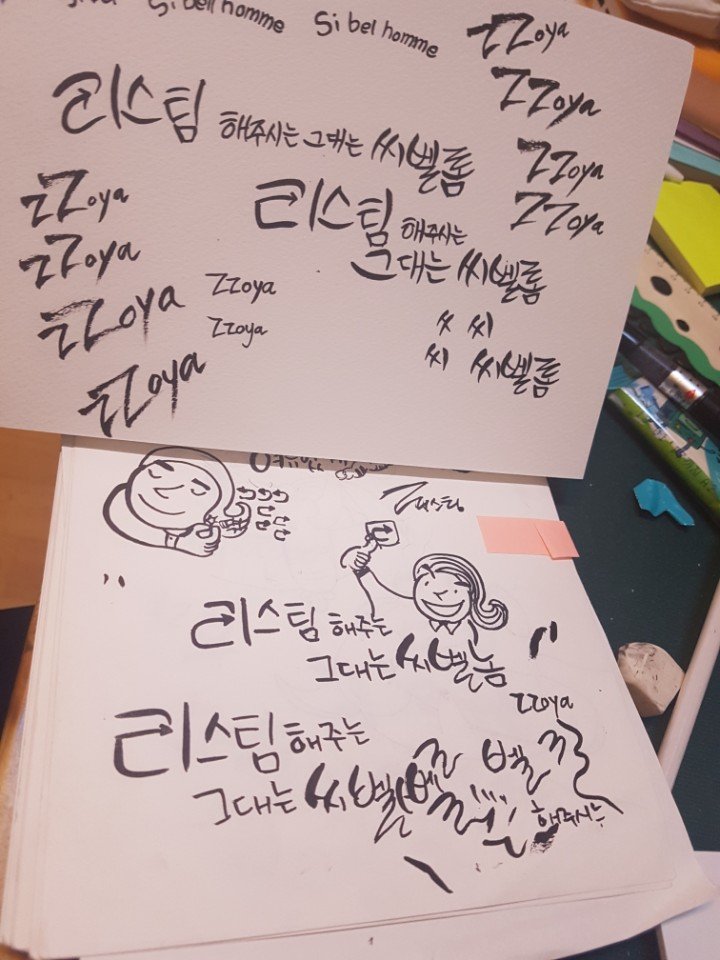 Si bell homme Si bel homme
zZoya
ZZoya
리스팀 해주시는 그대는 씨벨롬
ZZoya
zZoya
ZZoya
리스팀 해주시는
그대는 씨벨롬
zZoya
zZoya
zzoya
zzoya
ㅆ 씨
씨 씨벨롬
zZoya
리스팀
리스팀 해주는
그대는 씨벨놈
zzoya
리스팀 해주는
그대는 씨벨
벨
해주시는